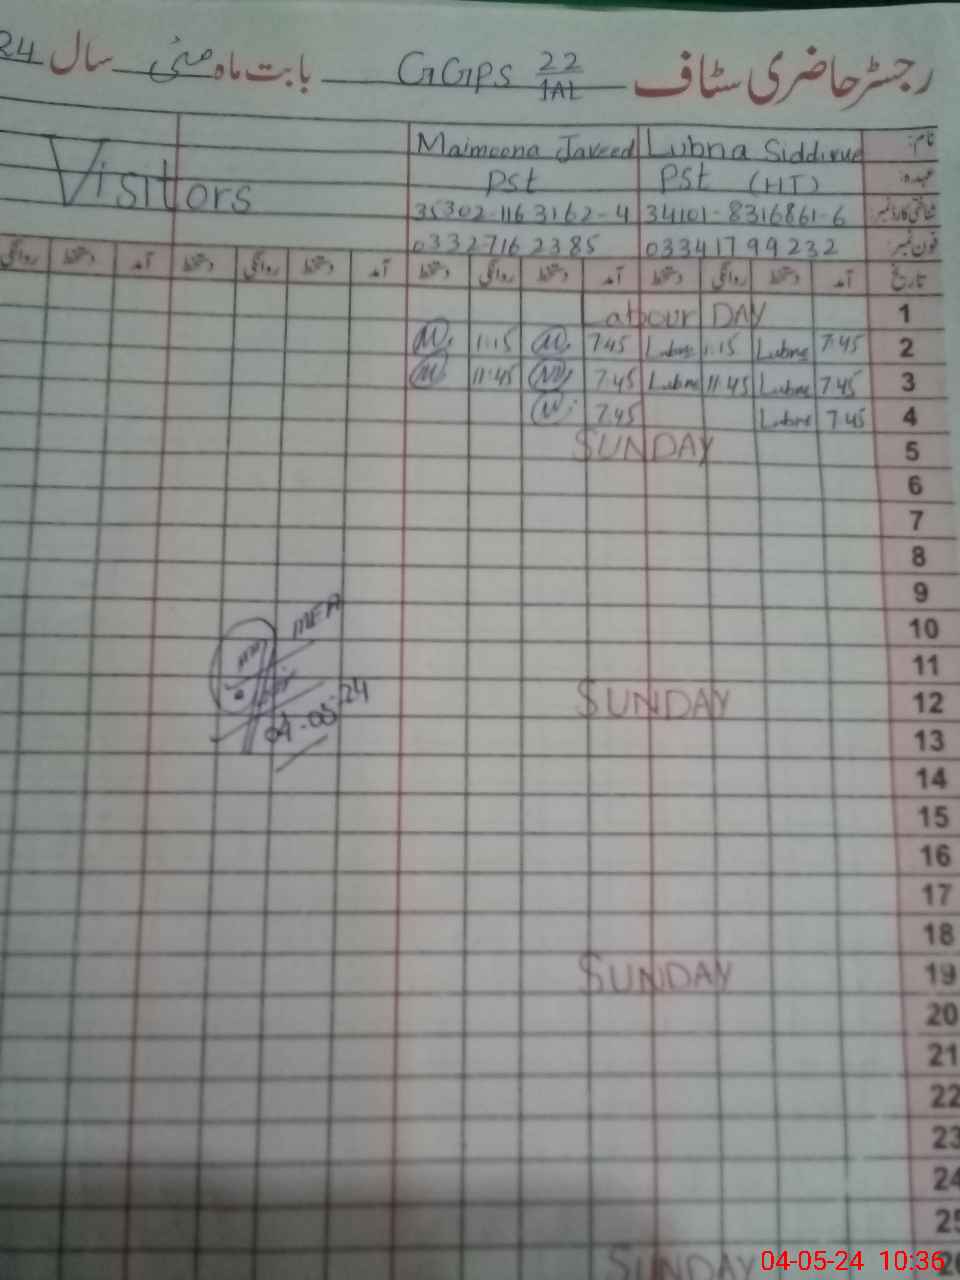 رجسٹر حاضری سٹاف GGPS 22/1AL بابت ماہ مئی سال 24
نام: Lubna Siddique Maimoona Javeed
عہدہ: PST (HT) PST Visitors
شناختی کارڈ نمبر: 34101-8316861-6 35302-1163162-4
فون نمبر: 03341799232 03327162385
تاریخ آمد دستخط روانگی دستخط آمد دستخط روانگی دستخط آمد دستخط روانگی دستخط آمد دستخط روانگی
1 Labour DAY
2 7:45 Lubna 1:15 Lubna 7:45 M. 1:15 M.
3 7:45 Lubna 11:45 Lubna 7:45 M. 11:45 M.
4 7:45 Lubna 7:45 M.
5 SUNDAY
6
7
8
9
10
11
12 SUNDAY
13
14
15
16
17
18
19 SUNDAY
20
21
22
23
24
25
26 SUNDAY
MEA
04-05-24
04-05-24 10:36